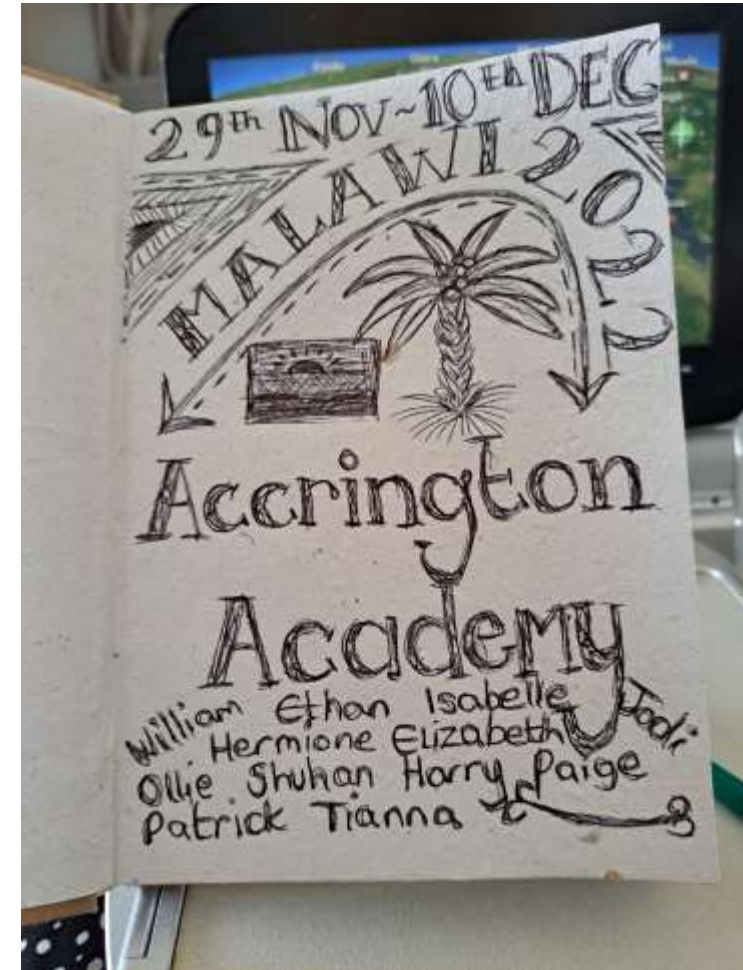 29th NOV~10th DEC
MALAWI 2022
Accrington
Academy
William Ethan Isabelle Jodi
Hermione Elizabeth
Ollie Shuhan Harry Paige
Patrick Tianna